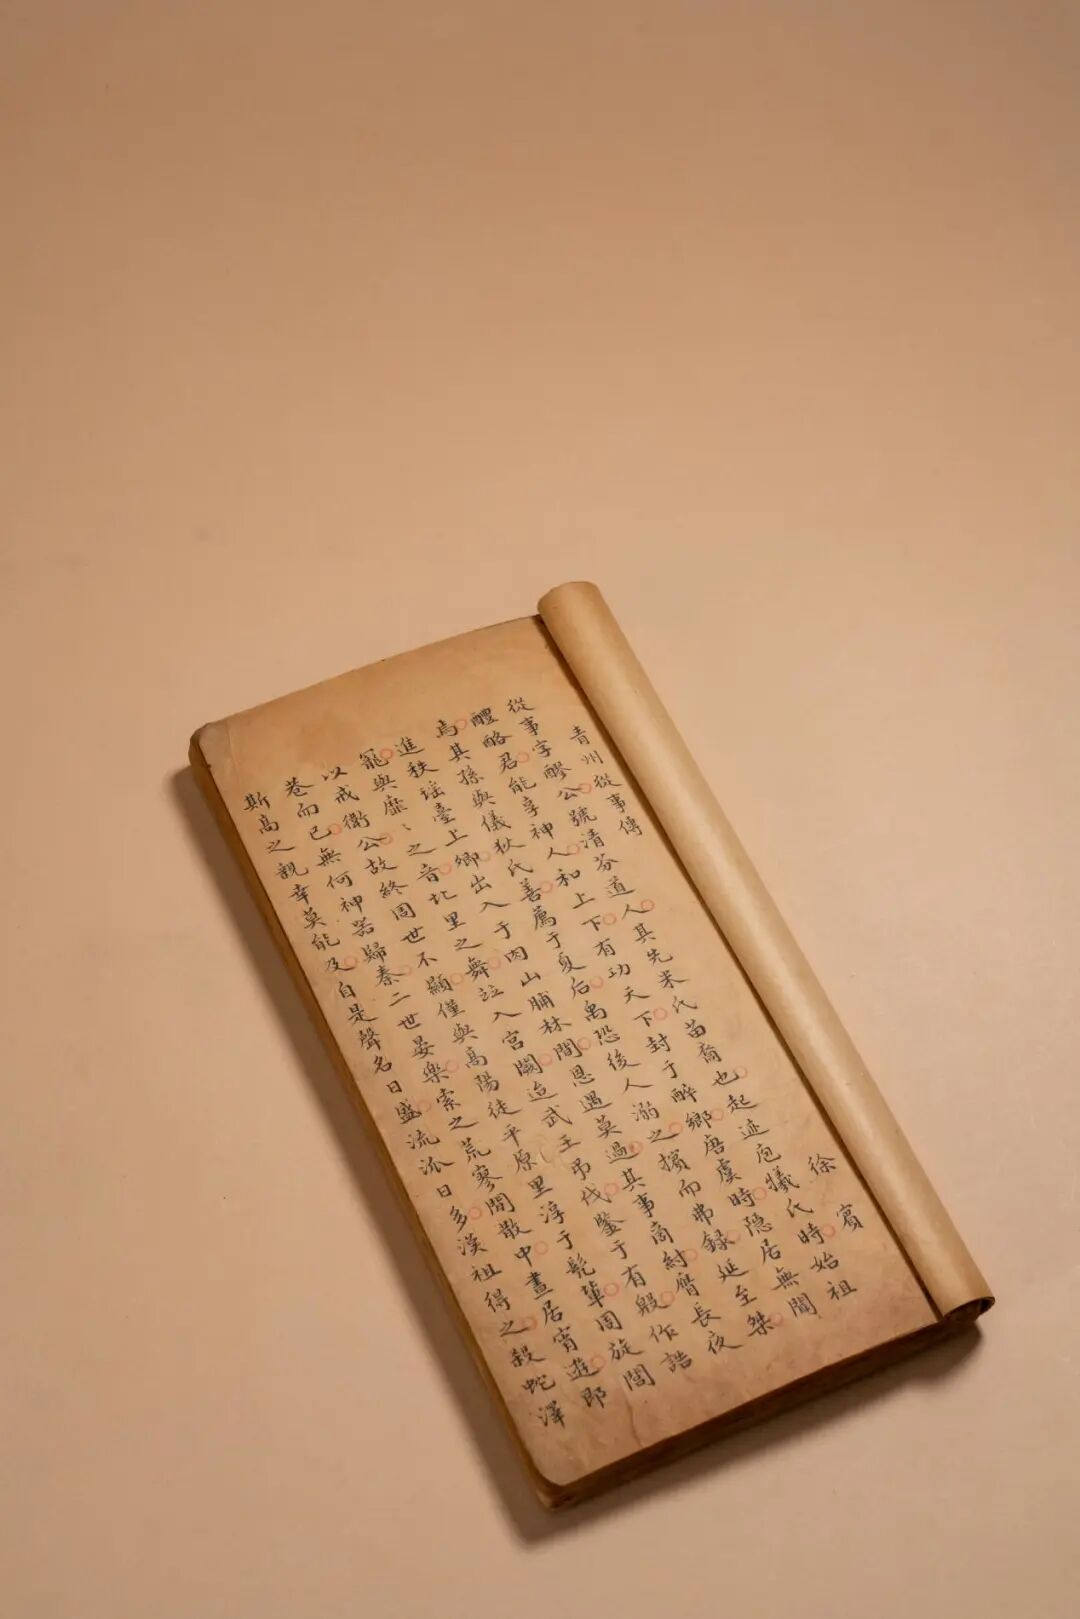 青州從事傳 徐賓
從事字醪公號清芬道人其先米氏苗裔也起迹庖犧氏時始祖
醴酪君能享神人和上下有功天下封于醉鄉唐虞時隱居無聞
焉其孫與儀狄氏善薦于夏后禹恐後人溺之擯而弗錄延至桀
進秩瑶臺上卿出入于肉山脯林間恩遇莫過其事商紂胥長夜
寵與靡〻之音北里之舞竝入宮闕迨武王弔伐鑒于有殷作誥
以戒衛公故終周世不顯僅與高陽徒平原里淳于髡輩周旋閭
巷而已無何神器歸秦二世晏樂索之荒寥間散中晝居宵遊即
斯高之親幸莫能及自是聲名日盛流派日多漢祖得之殺蛇澤